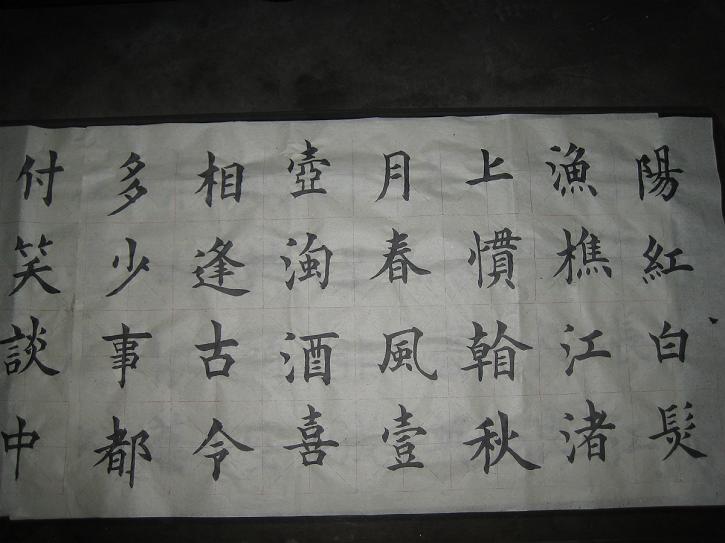 陽紅白髮
漁樵江渚
上慣翰秋
月春風壹
壺濁酒喜
相逢古令
多少事都
付笑談中